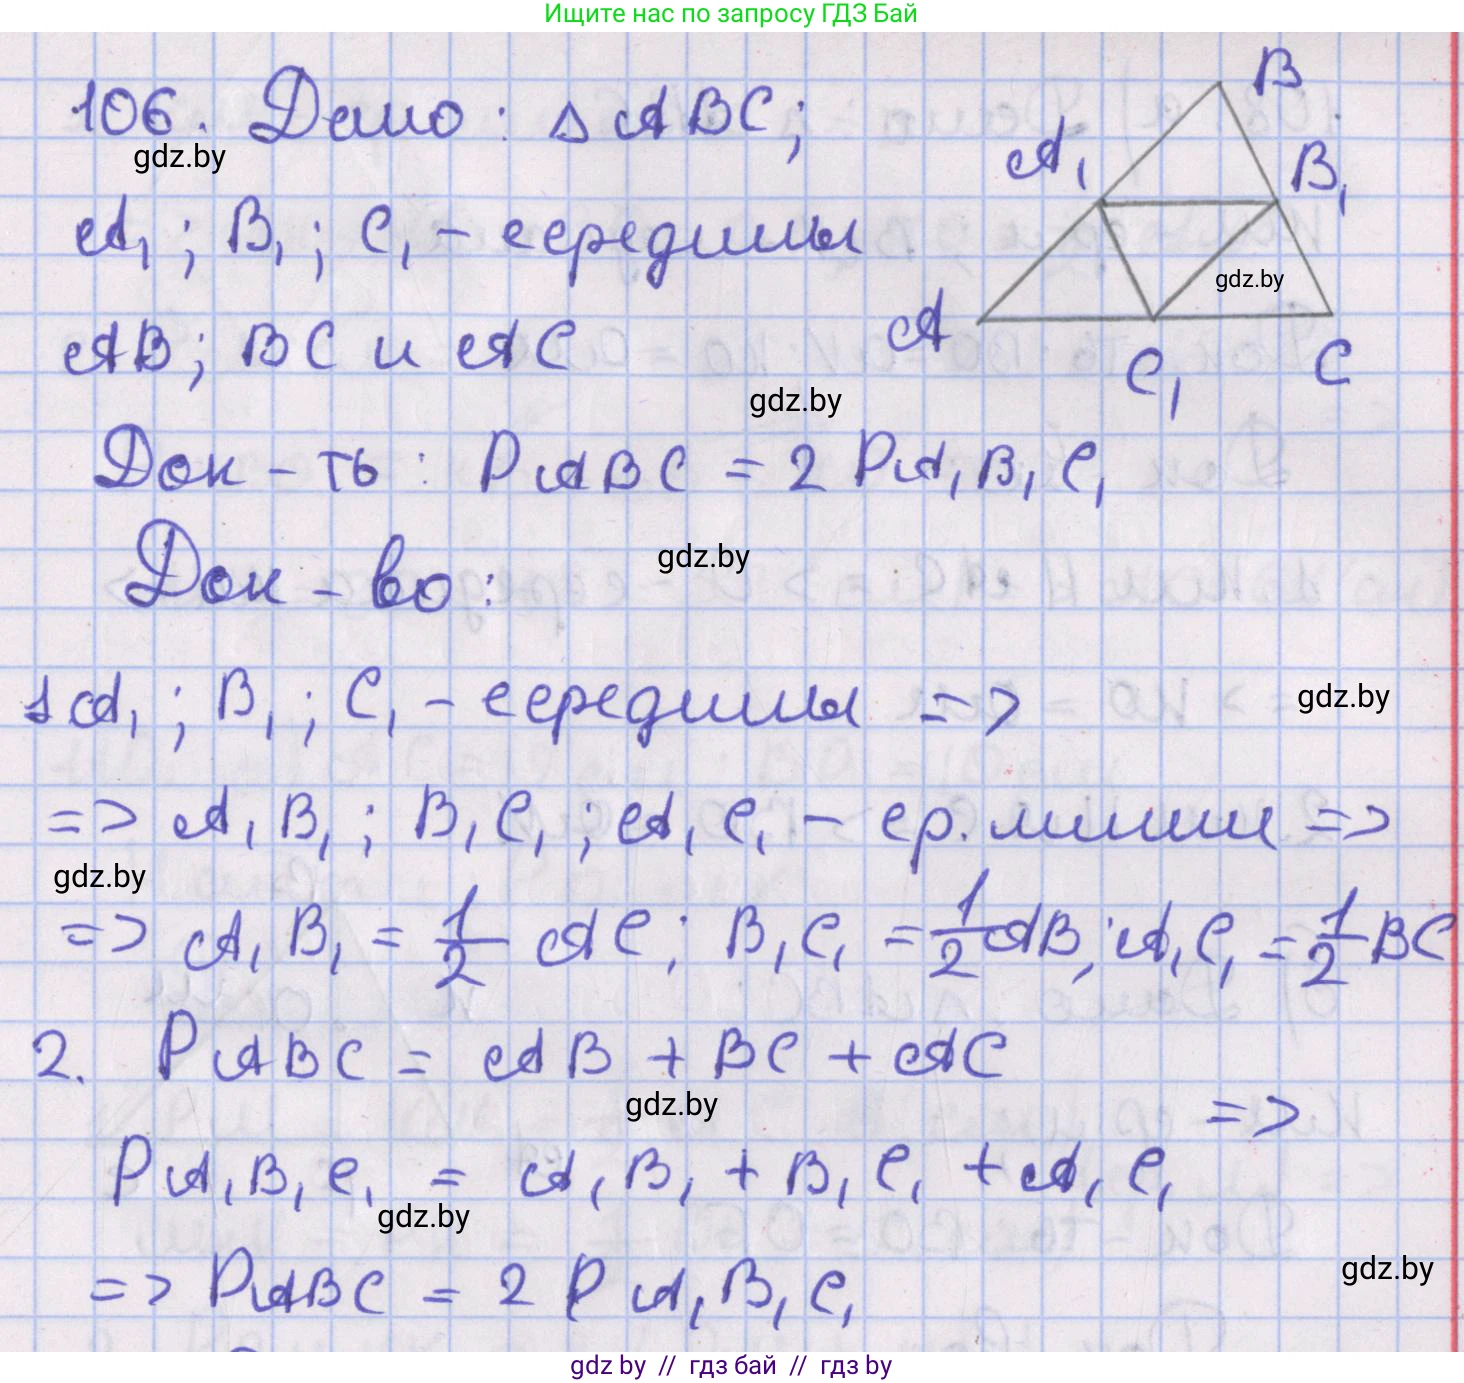 Ищите нас по запросу ГДЗ Бай
106. Дано: △ABC;
gdz.by
A₁; B₁; C₁ - середины
AB; BC и AC
B
A₁
B₁
gdz.by
A
C₁
C
gdz.by
Док-ть: PABC = 2 PA₁B₁C₁
Док-во:
gdz.by
1 A₁; B₁; C₁ - середины =>
gdz.by
=> A₁B₁; B₁C₁; A₁C₁ - ср. линии =>
gdz.by
=> A₁B₁ = 1/2 AC; B₁C₁ = 1/2 AB; A₁C₁ = 1/2 BC
2. PABC = AB + BC + AC
gdz.by
=>
PA₁B₁C₁ = A₁B₁ + B₁C₁ + A₁C₁
gdz.by
=> PABC = 2 PA₁B₁C₁
gdz.by
gdz by // гдз бай // гдз by